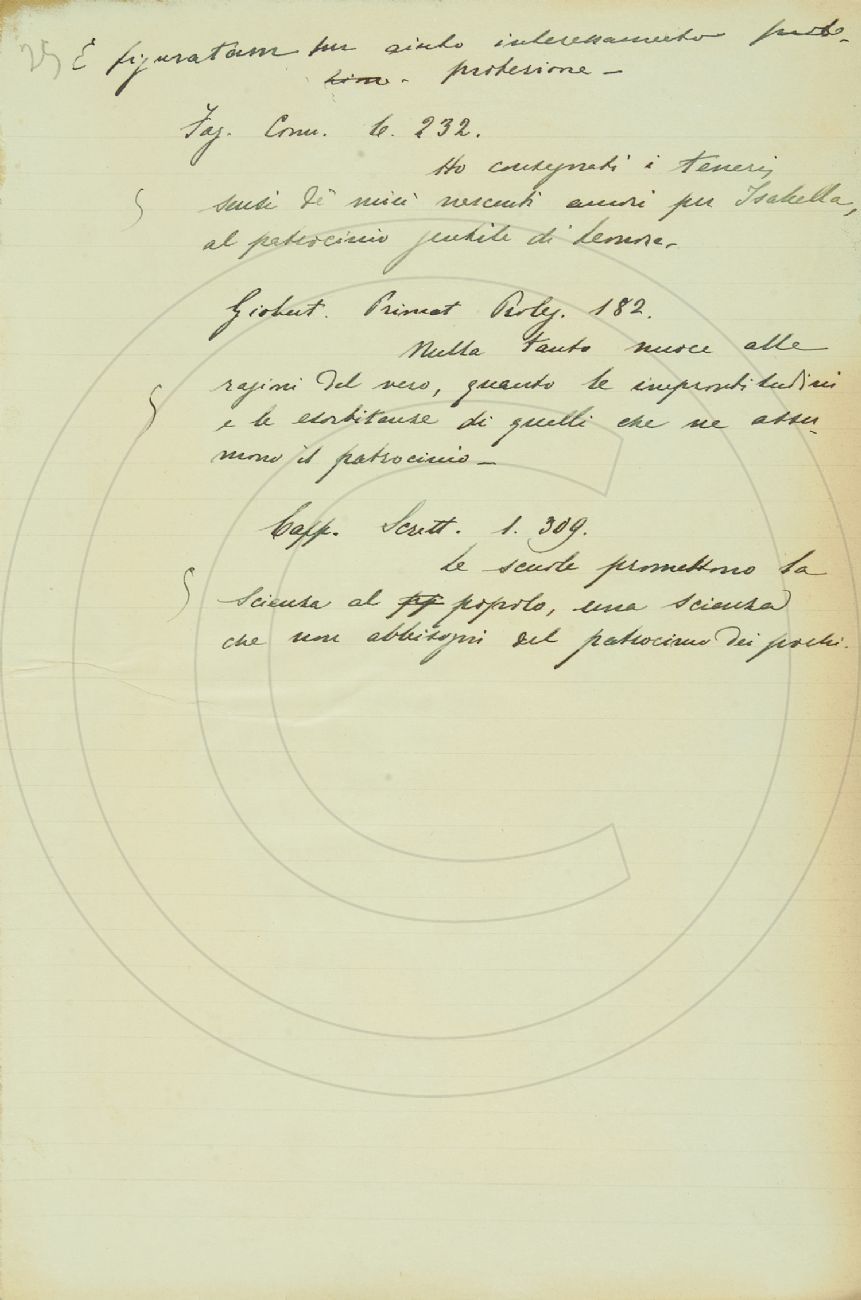 25) È figuratam per aiuto interessamento prote-
zione - protezione -
Fag. Com. 6. 232.
Ho consegnati i teneri
sensi de' miei nascenti amori per Isabella,
al patrocinio gentile di Leonora.
Giobert. Primat Proleg. 182.
Nulla tanto nuoce alle
ragioni del vero, quanto le improntitudini
e le esorbitanze di quelli che ne assu-
mono il patrocinio -
Capp. Scritt. 1. 309.
Le scuole promettono la
scienza al popolo, una scienza
che non abbisogni del patrocinio dei pochi.